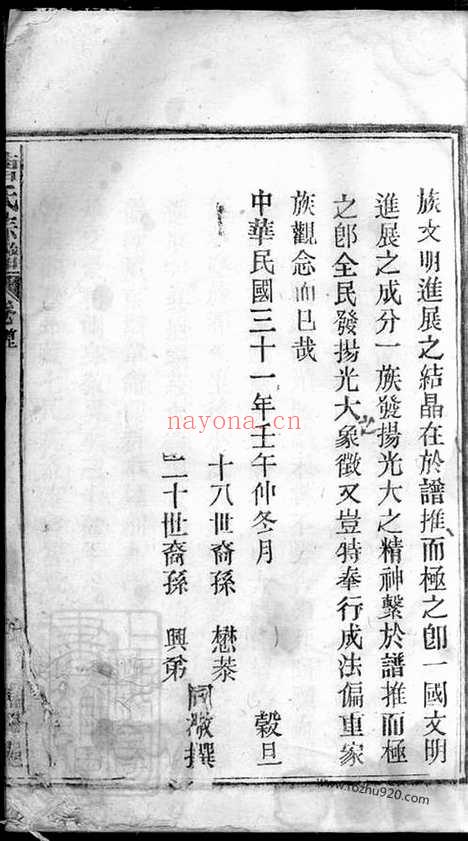 族文明進展之結晶在於譜推而極之卽一國文明
進展之成分一族發揚光大之精神繫於譜推而極
之卽全民發揚光大之象徵又豈特奉行成法偏重家
族觀念而已哉
中華民國三十一年壬午仲冬月 穀旦
十八世裔孫 懋棻
二十世裔孫 興第
同 撰
氏宗譜 卷
nayona.cn
www.rozhu920.com